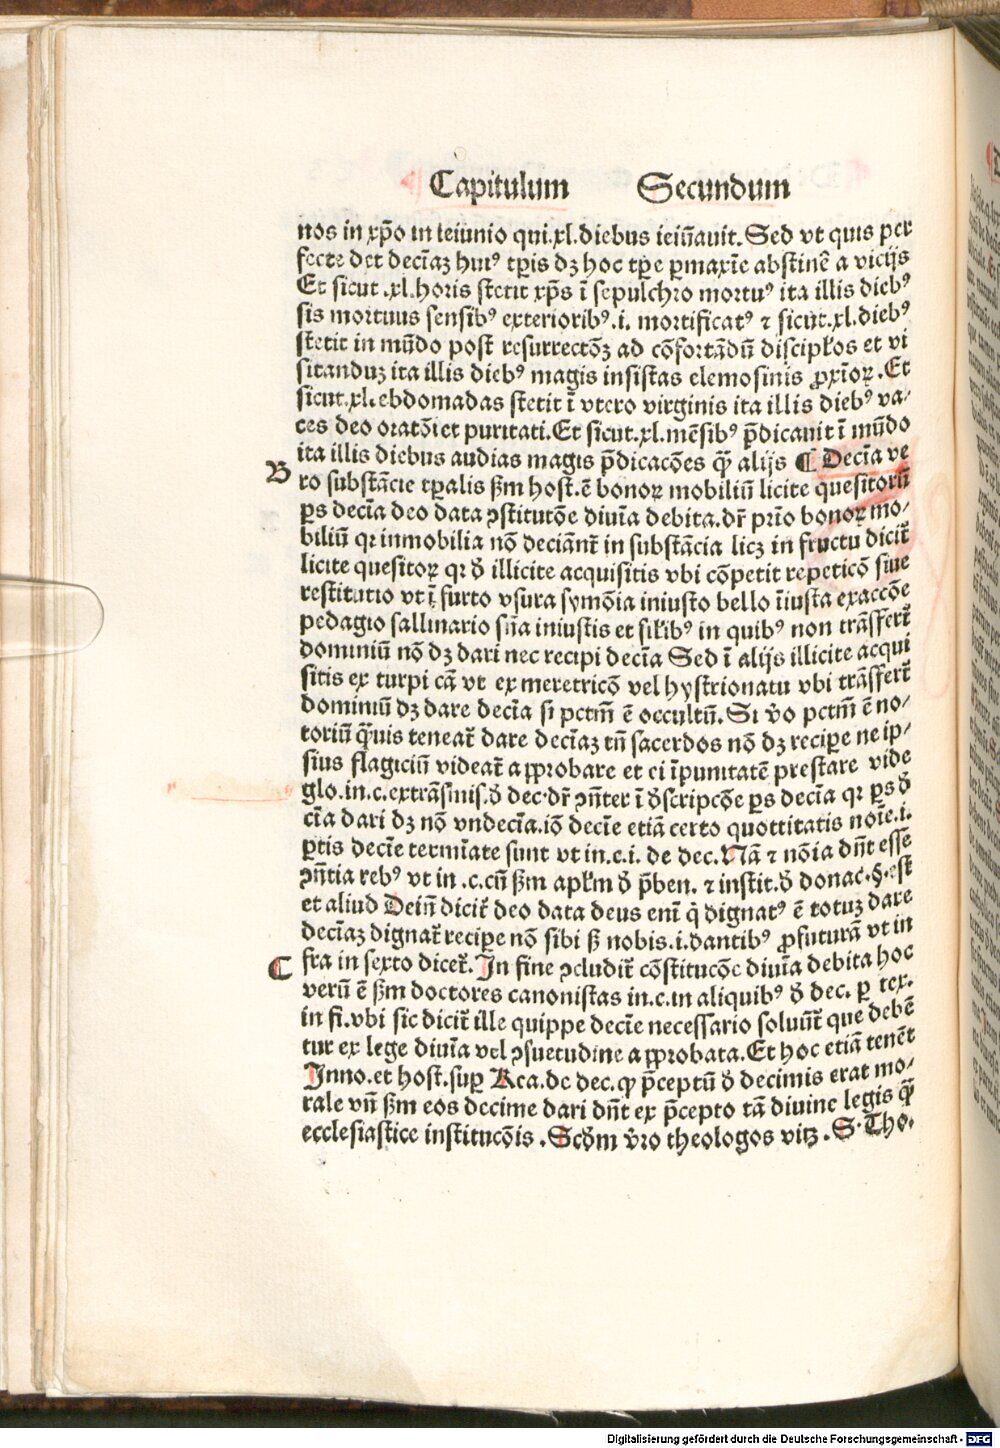 Capitulum Secundum
nos in xp̄o in ieiunio qui .xl. diebus ieiūauit. Sed vt quis per
fecte det decīaꝫ huiꝰ tꝑis dꝫ hoc tꝑe ꝑmaxīe abstinē a vicijs
Et sicut .xl. horis stetit xp̄s ī sepulchro mortuꝰ ita illis diebꝰ
sis mortuus sensibꝰ exterioribꝰ .i. mortificatꝰ ⁊ sicut .xl. diebꝰ
stetit in mūdo post resurrectōꝫ ad cōfortādū discipłos et vi
sitanduꝫ ita illis diebꝰ magis insistas elemosinis ꝓxīoꝝ. Et
sicut .xl. ebdomadas stetit ī vtero virginis ita illis diebꝰ va⸗
ces deo oratōi et puritati. Et sicut .xl. mēsibꝰ p̄dicauit ī mūdo
ita illis diebus audias magis p̄dicacōes q̄ꝫ alijs ¶ Decīa ve
B
ro substācie tꝑalis ẜm host. ē bonoꝝ mobiliū licite quesitorū
ꝑs decīa deo data ꝯstitutōe diuīa debita. dr̄ prīo bonoꝝ mo⸗
biliū qꝛ inmobilia nō deciānt̄ in substācia licꝫ in fructu dicit̄
licite quesitoꝝ qꝛ ꝺ̄ illicite acquisitis vbi cōpetit repeticō siue
restitutio vt ī furto vsura symōia iniusto bello īiusta exaccōe
pedagio sallinario sn̄ia iniustis et siłibꝰ in quibꝰ non trāsfert̄
dominiū nō dꝫ dari nec recipi decīa Sed ī alijs illicite acqui
sitis ex turpi cā vt ex meretricō vel hystrionatu vbi trāsfert̄
dominiū dꝫ dare decīa si pctm̄ ē occultū. Si v̄o pctm̄ ē no⸗
toriū q̄ꝫuis teneat̄ dare decīaꝫ tn̄ sacerdos nō dꝫ recipe ne ip⸗
sius flagiciū videat̄ approbare et ei īpunitatē prestare vide
glo. in .c. extrāsmis. ꝺ̄ dec. dr̄ ꝯn̄ter ī ꝺ̄scripcōe ꝑs decīa qꝛ ꝑs ꝺ̄
cīa dari dꝫ nō vndecīa. iō decīe etiā certo quottitatis nōīe .i.
ꝑtis decīe termīate sunt vt in .c. i. de dec. Nā ⁊ nōia dn̄t esse
ꝯn̄tia rebꝰ vt in .c. cū ẜm apłm ꝺ̄ p̄ben. ⁊ instit. ꝺ̄ donac. §. est
et aliud Dein̄ dicit̄ deo data deus enī q̇ dignatꝰ ē totuꝫ dare
decīaꝫ dignat̄ recipe nō sibi ẜ nobis .i. dantibꝰ ꝓfuturā vt in
C
fra in sexto dicet̄. In fine ꝯcludit̄ cōstitucōe diuīa debita hoc
verū ē ẜm doctores canonistas in .c. in aliquibꝰ ꝺ̄ dec. ꝑ tex.
in fi. vbi sic dicit̄ ille quippe decīe necessario soluūt̄ que debē
tur ex lege diuīa vel ꝯsuetudine approbata. Et hoc etiā tenēt
Inno. et host. suꝑ Rca. de dec. ꝙ p̄ceptū ꝺ̄ decimis erat mo⸗
rale vn̄ ẜm eos decime dari dn̄t ex p̄cepto tā diuine legis q̄ꝫ
ecclesiastice institucōis. Scꝺ̄m v̄ro theologos vitꝫ. S. Tho.
Digitalisierung gefördert durch die Deutsche Forschungsgemeinschaft - DFG